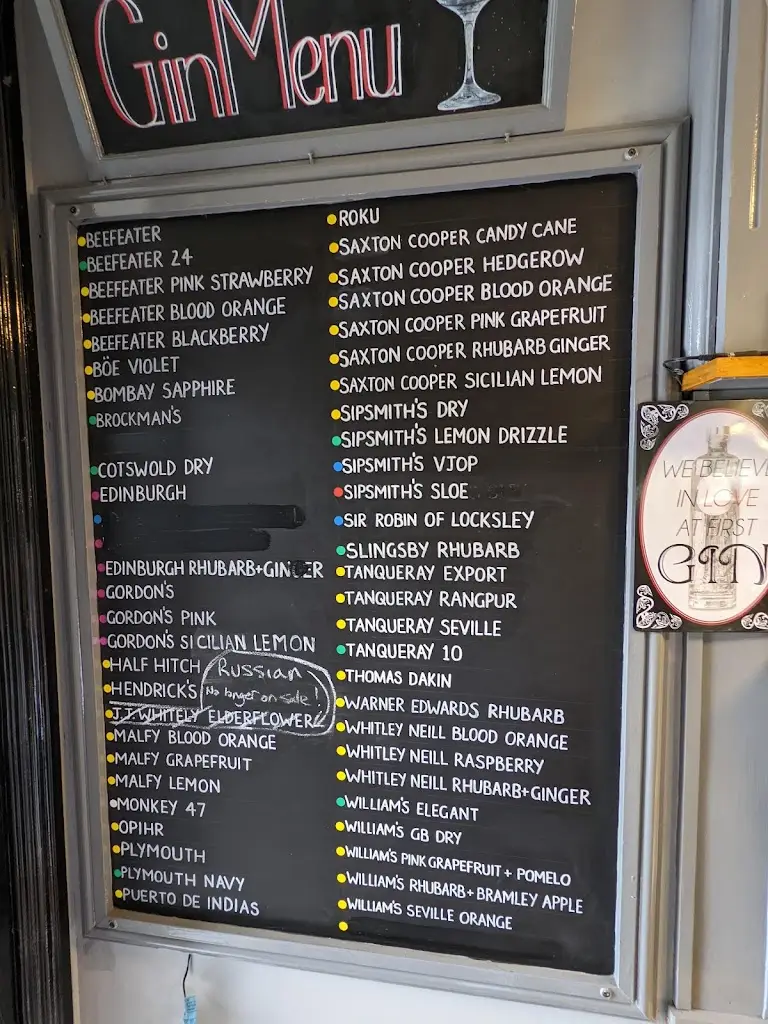 Gin Menu
BEEFEATER
BEEFEATER 24
BEEFEATER PINK STRAWBERRY
BEEFEATER BLOOD ORANGE
BEEFEATER BLACKBERRY
BÖE VIOLET
BOMBAY SAPPHIRE
BROCKMAN'S
COTSWOLD DRY
EDINBURGH
EDINBURGH RHUBARB+GINGER
GORDON'S
GORDON'S PINK
GORDON'S SICILIAN LEMON
HALF HITCH
HENDRICK'S
J.J. WHITELY ELDERFLOWER
Russian
No longer on sale!
MALFY BLOOD ORANGE
MALFY GRAPEFRUIT
MALFY LEMON
MONKEY 47
OPIHR
PLYMOUTH
PLYMOUTH NAVY
PUERTO DE INDIAS
ROKU
SAXTON COOPER CANDY CANE
SAXTON COOPER HEDGEROW
SAXTON COOPER BLOOD ORANGE
SAXTON COOPER PINK GRAPEFRUIT
SAXTON COOPER RHUBARB GINGER
SAXTON COOPER SICILIAN LEMON
SIPSMITH'S DRY
SIPSMITH'S LEMON DRIZZLE
SIPSMITH'S VJOP
SIPSMITH'S SLOE
SIR ROBIN OF LOCKSLEY
SLINGSBY RHUBARB
TANQUERAY EXPORT
TANQUERAY RANGPUR
TANQUERAY SEVILLE
TANQUERAY 10
THOMAS DAKIN
WARNER EDWARDS RHUBARB
WHITLEY NEILL BLOOD ORANGE
WHITLEY NEILL RASPBERRY
WHITLEY NEILL RHUBARB+GINGER
WILLIAM'S ELEGANT
WILLIAM'S GB DRY
WILLIAM'S PINK GRAPEFRUIT + POMELO
WILLIAM'S RHUBARB + BRAMLEY APPLE
WILLIAM'S SEVILLE ORANGE
WE BELIEVE
IN LOVE
AT FIRST
GIN